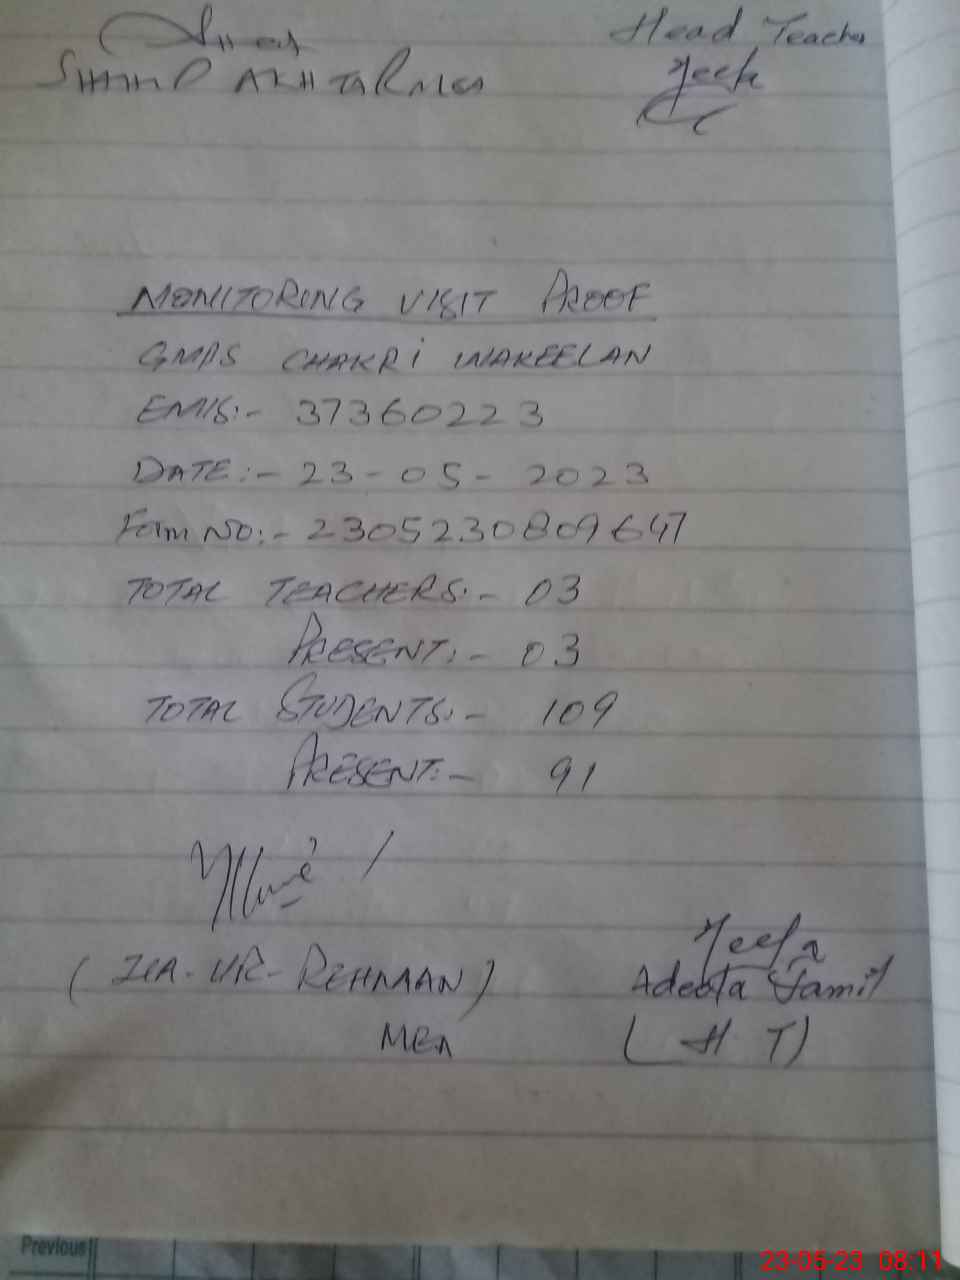 Head Teacher
SHAHID AKHTAR MEA
MONITORING VISIT PROOF
GMPS CHAKRI WAKEELAN
EMIS:- 37360223
DATE:- 23-05-2023
Form NO:- 2305230809647
TOTAL TEACHERS:- 03
PRESENT:- 03
TOTAL STUDENTS:- 109
PRESENT:- 91
(ZIA-UR-REHMAN)
MEA
Adeeba Jamil
(H T)
Previous
23-05-23 08:11